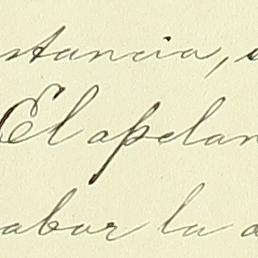 stancia,
El apelan
abar la